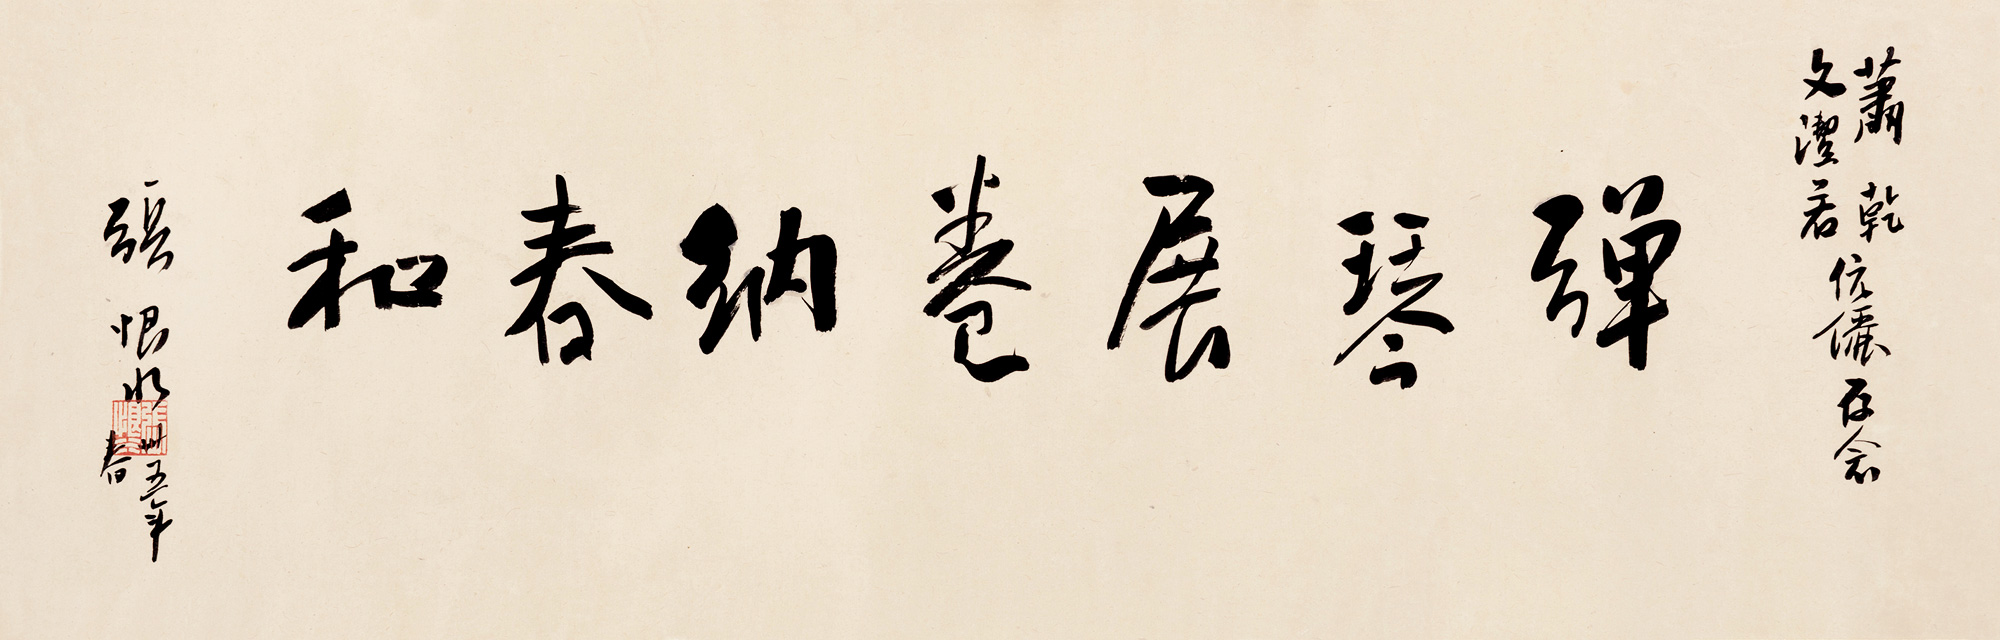 蕭乾
文潔若
伉儷存念
彈琴展卷納春和
張恨水
卅五年
春
張恨水